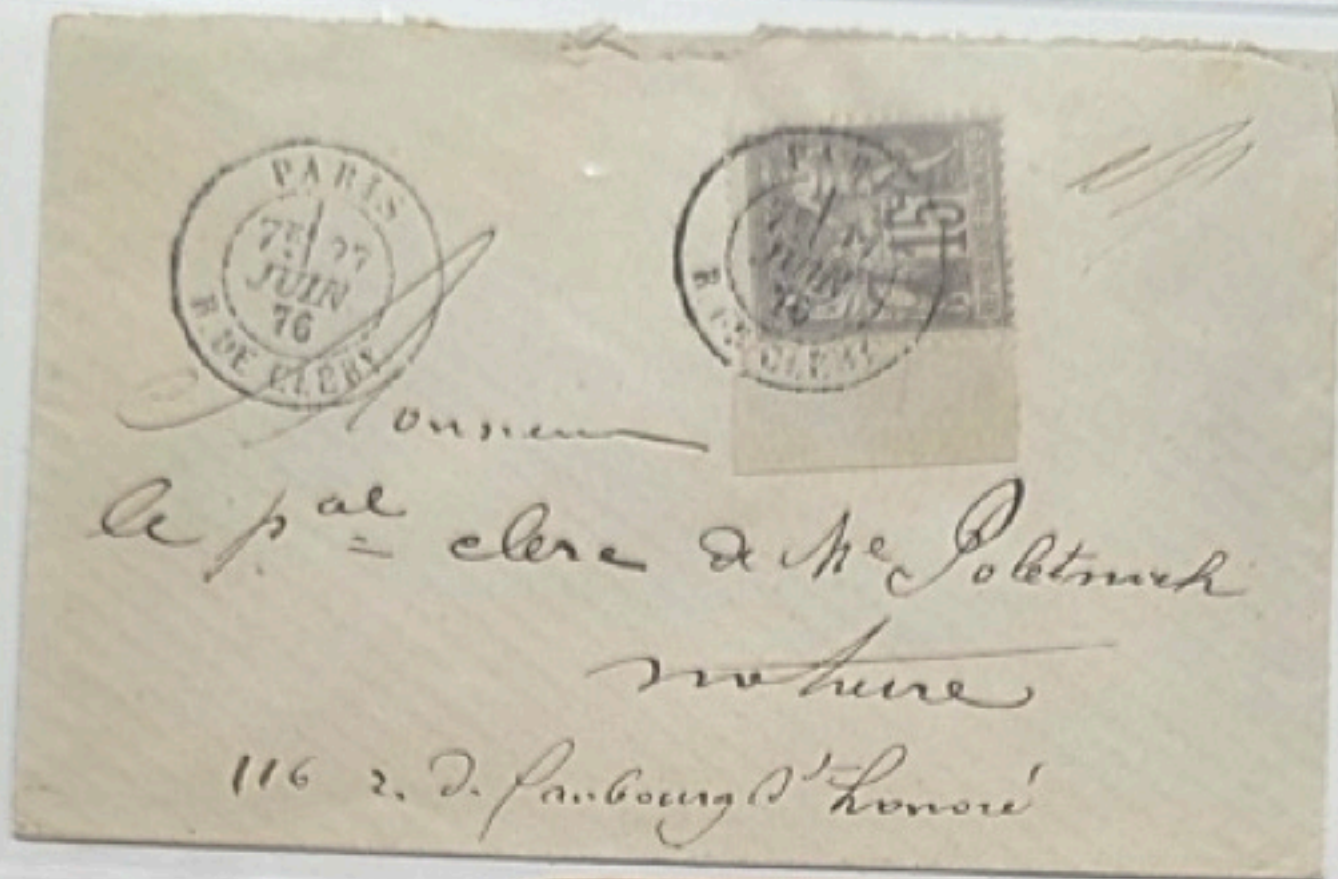 PARIS
7E 27
JUIN
76
R. DE CLERY
PAR
JUIN
76
R. DE CLERY
15
Monsieur
le pal clerc de Me Poletnich
notaire
116 r. d. faubourg St honoré